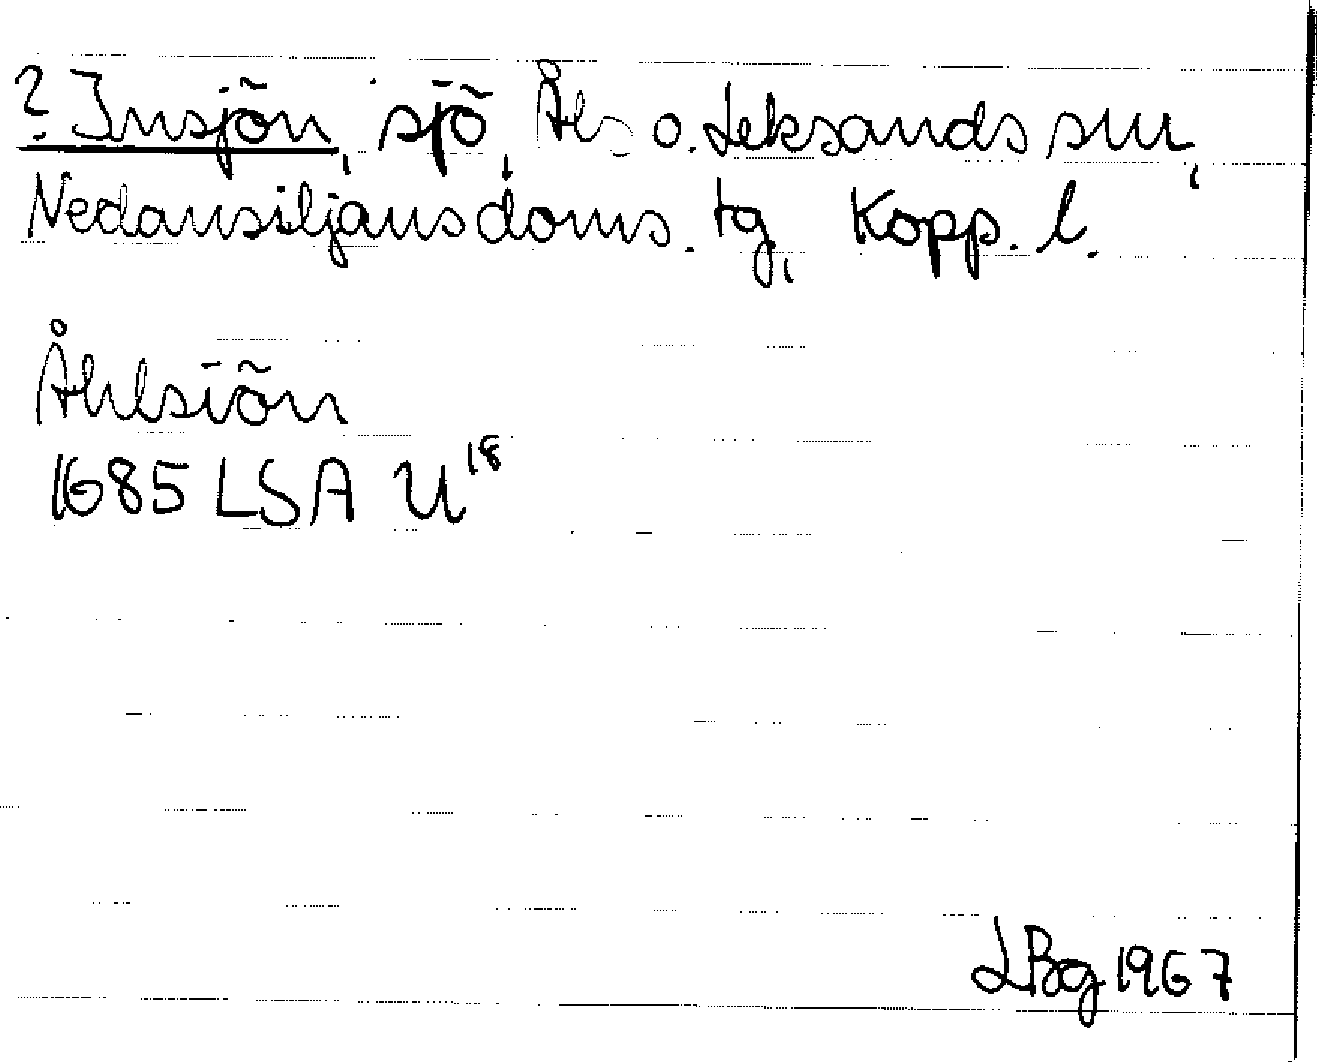 ? Insjön, sjö, Åls o. Leksands snr,
Nedansiljans doms. tg, Kopp. l.
Åhlsiön
1685 LSA U18
LBg 1967